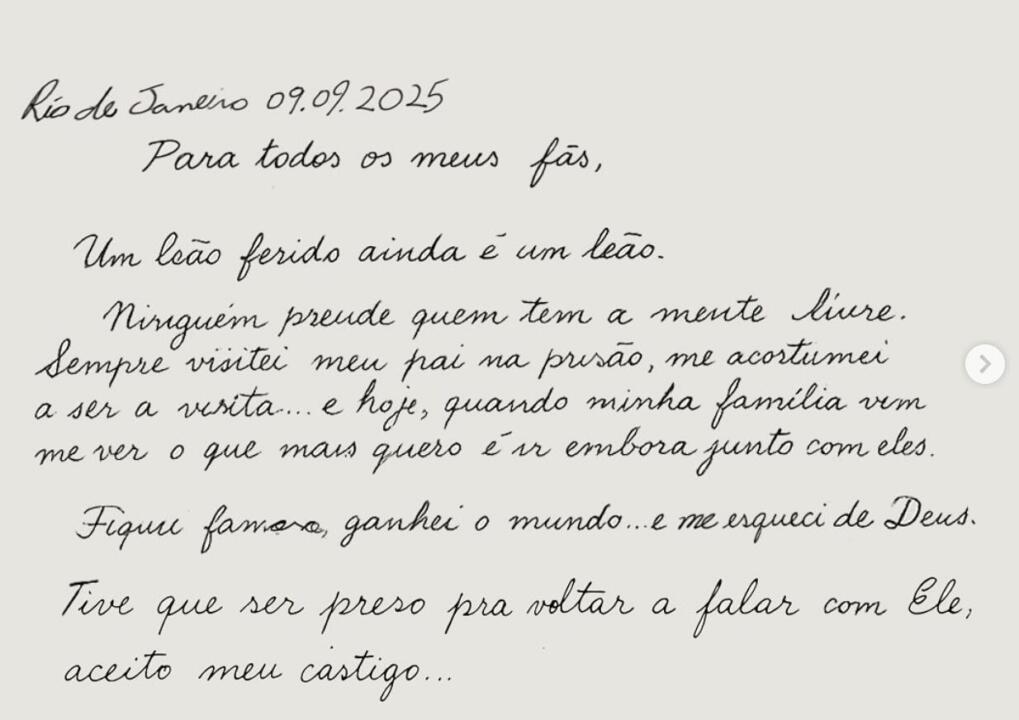 Rio de Janeiro 09.09.2025
Para todos os meus fãs,
Um leão ferido ainda é um leão.
Ninguém prende quem tem a mente livre.
Sempre visitei meu pai na prisão, me acostumei
a ser a visita... e hoje, quando minha família vem
me ver o que mais quero é ir embora junto com eles.
Fiquei famoso, ganhei o mundo...e me esqueci de Deus.
Tive que ser preso pra voltar a falar com Ele,
aceito meu castigo...